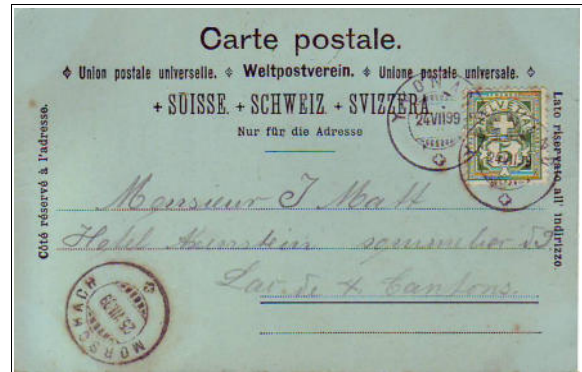 Carte postale.
Union postale universelle. Weltpostverein. Unione postale universale.
+ SUISSE. + SCHWEIZ. + SVIZZERA
Nur für die Adresse
Côté réservé à l'adresse.
Lato riservato all' indirizzo.
24.VII.99
HELVETIA
5
Monsieur J Matt
Hotel Axenstein sommelier d
Lac de 4 Cantons.
MORSCHACH
25.VII.99